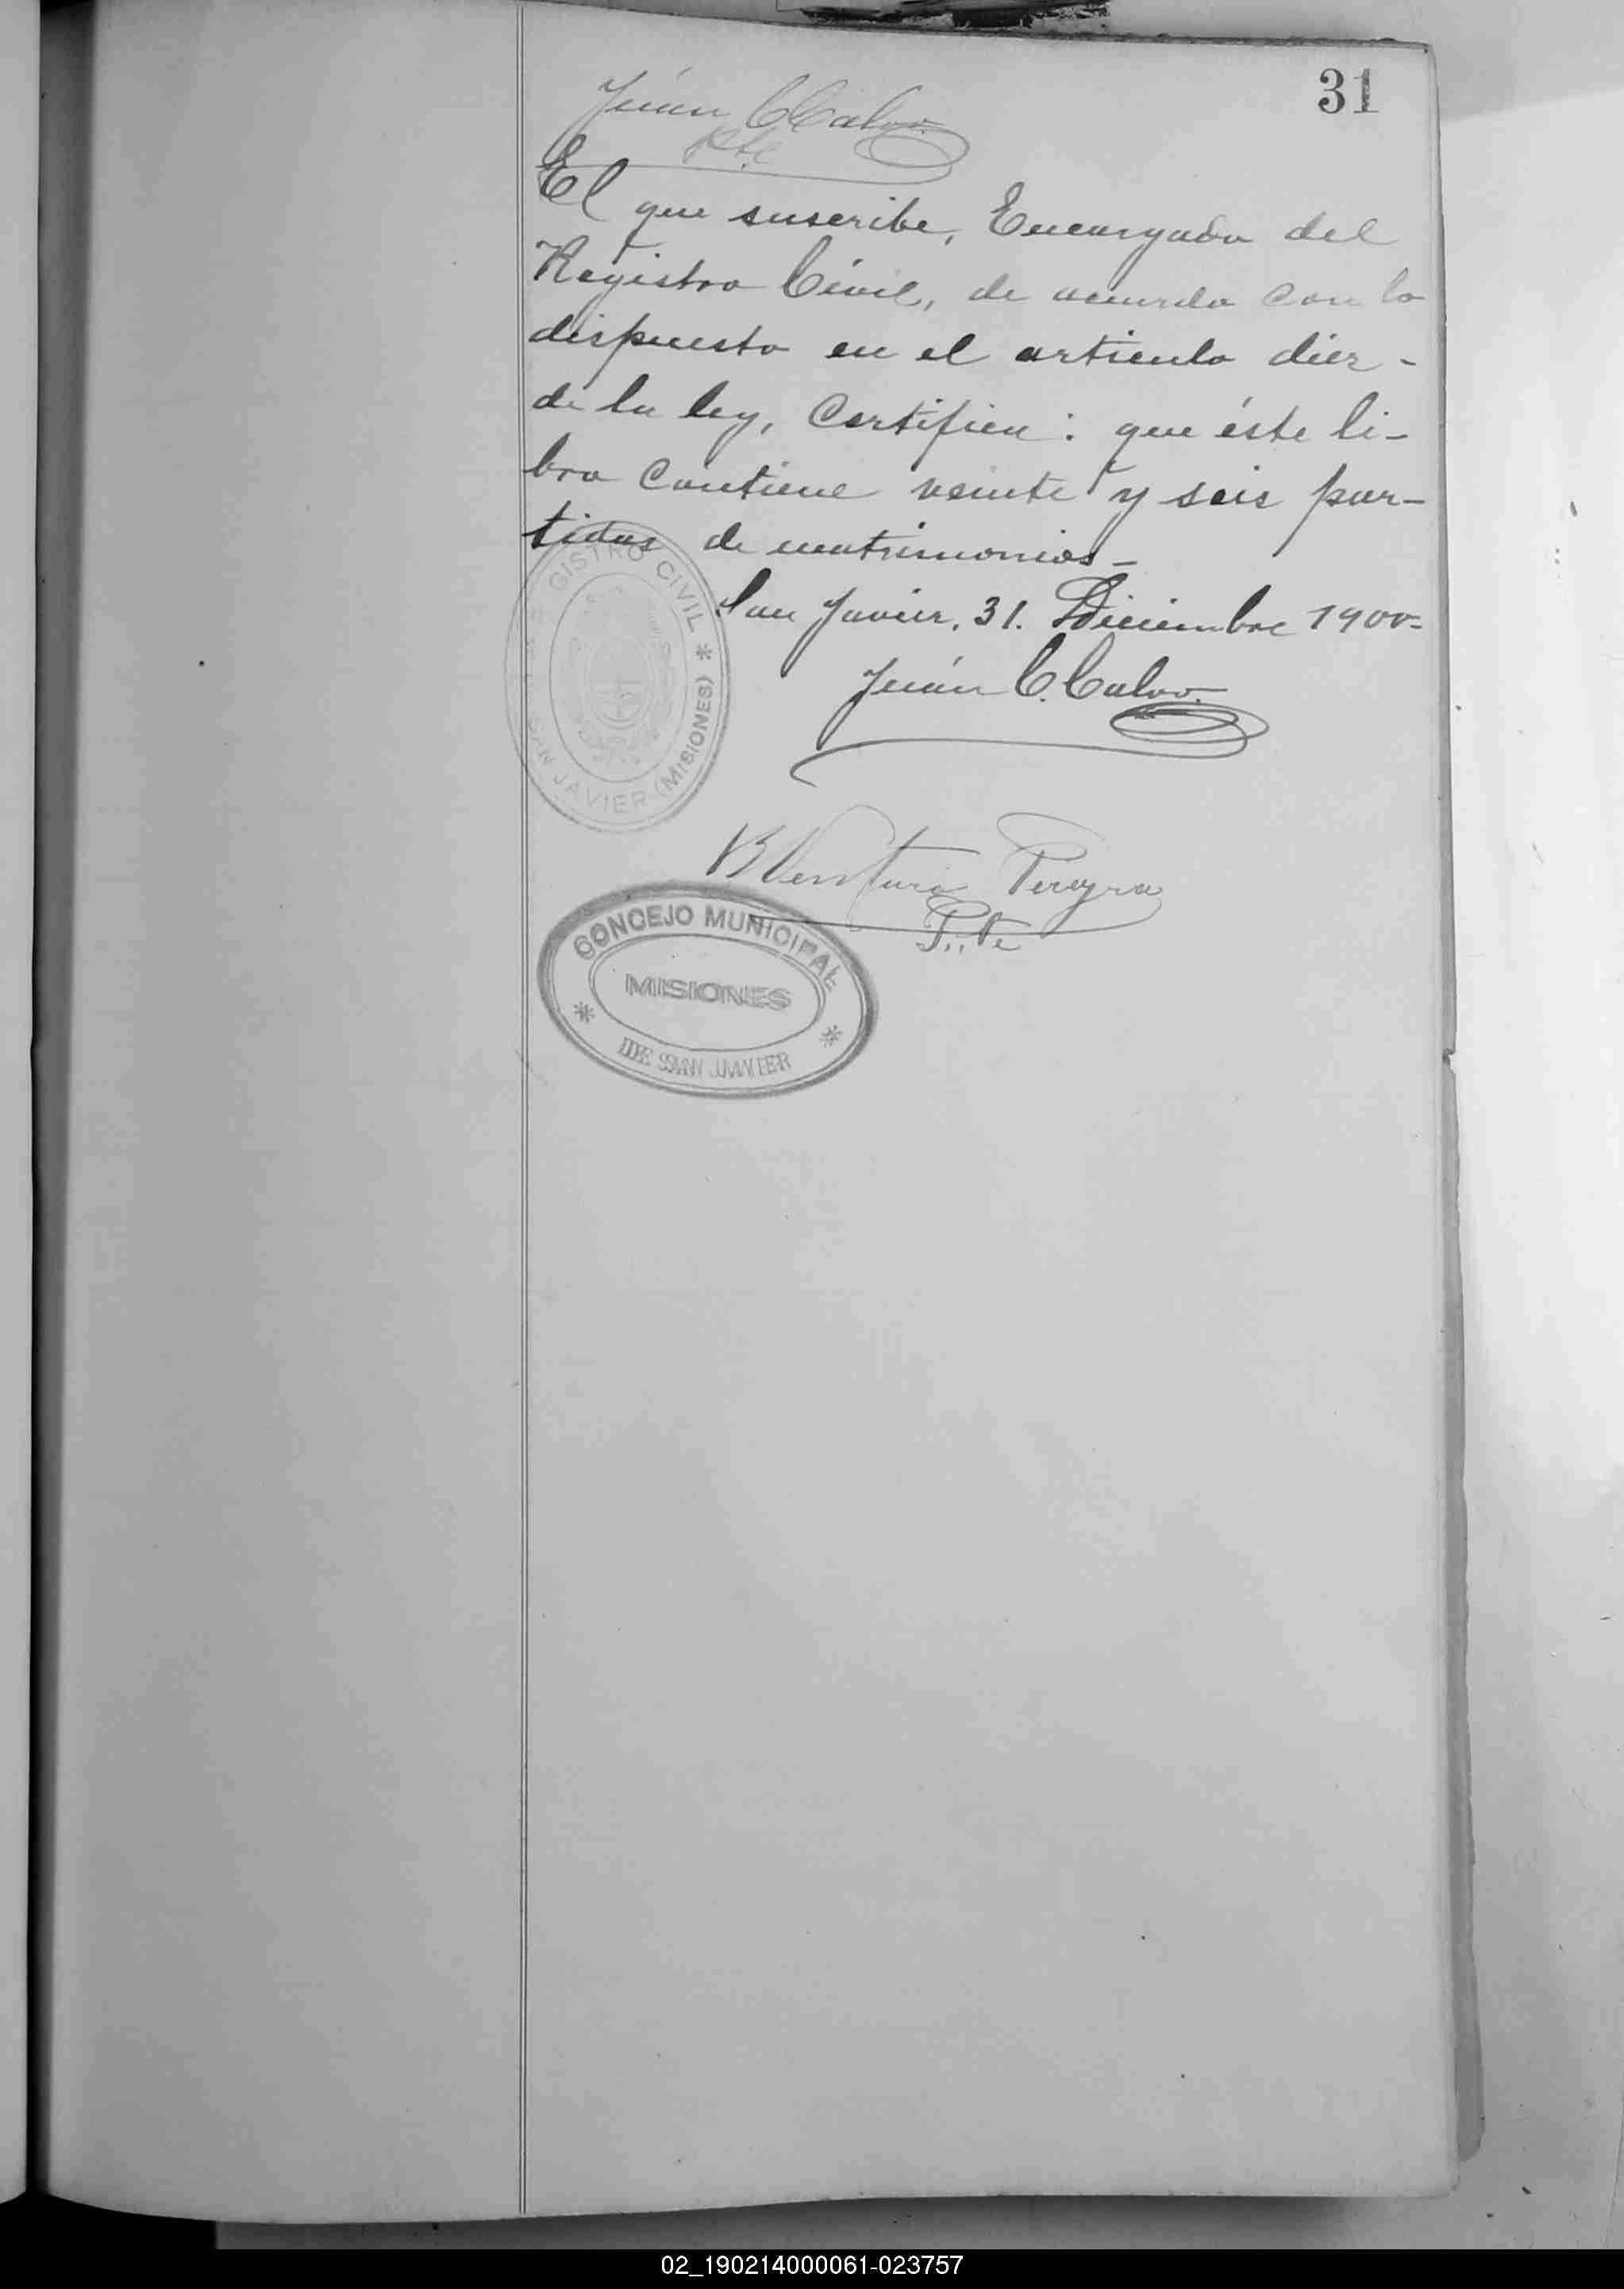 31
Juán C. Calvo.
Pte
El que suscribe, Encargado del
Registro Civil, de acuerdo con lo
dispuesto en el articulo diez -
de la ley, Certifica: que éste li-
bro contiene veinte y seis par-
tidas de matrimonios -
San Javier, 31. Diciembre 1900=
Juán C. Calvo.
REGISTRO CIVIL * SAN JAVIER (MISIONES)
BVentura Pereyra
P..te
CONCEJO MUNICIPAL
MISIONES
* DE SAN JAVIER *
02_190214000061-023757